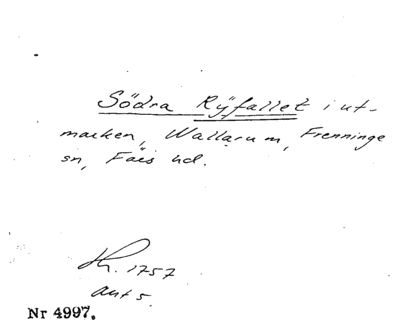 Södra Ryfallet i ut-
marken, Wallarum, Frenninge
sn, Färs hd.
Lh. 1757
Akt 5.
Nr 4997.